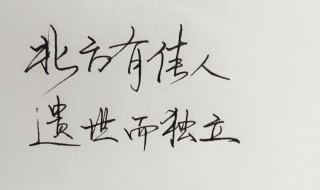 北方有佳人
遗世而独立